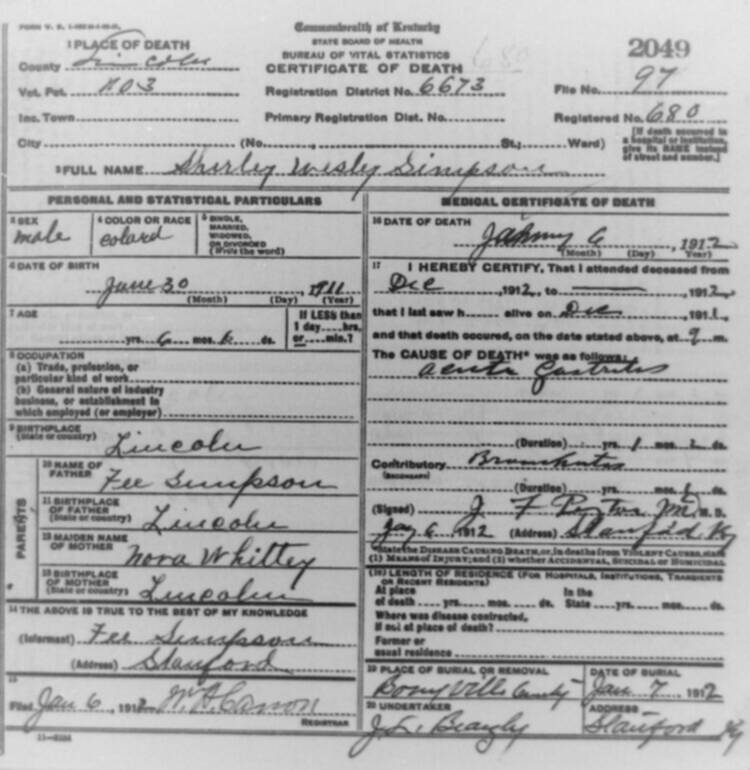 Commonwealth of Kentucky
STATE BOARD OF HEALTH
BUREAU OF VITAL STATISTICS
CERTIFICATE OF DEATH
680
2049
1 PLACE OF DEATH
County Lincoln
Vot. Pct. No 3
Inc. Town
City (No. St.; Ward)
Registration District No. 6673
Primary Registration Dist. No.
File No. 97
Registered No. 680
[If death occurred in
a hospital or institution,
give its NAME instead
of street and number.]
2 FULL NAME Shirley Wesley Simpson
PERSONAL AND STATISTICAL PARTICULARS
3 SEX
male
4 COLOR OR RACE
colard
5 SINGLE,
MARRIED,
WIDOWED,
OR DIVORCED
(Write the word)
6 DATE OF BIRTH
June 30, 1911
(Month) (Day) (Year)
7 AGE
yrs. 6 mos. 6 ds.
If LESS than
1 day....hrs.
or....min.?
8 OCCUPATION
(a) Trade, profession, or
particular kind of work
(b) General nature of industry
business, or establishment in
which employed (or employer)
9 BIRTHPLACE
(State or country)
Lincoln
PARENTS
10 NAME OF
FATHER
Fee Simpson
11 BIRTHPLACE
OF FATHER
(State or country)
Lincoln
12 MAIDEN NAME
OF MOTHER
Nora Whitley
13 BIRTHPLACE
OF MOTHER
(State or country)
Lincoln
14 THE ABOVE IS TRUE TO THE BEST OF MY KNOWLEDGE
(Informant) Fee Simpson
(Address) Stanford
15
Filed Jan 6, 1912 W. A. Carson
REGISTRAR
MEDICAL CERTIFICATE OF DEATH
16 DATE OF DEATH
6, 1912
(Month) (Day) (Year)
17 I HEREBY CERTIFY, That I attended deceased from
Dec, 1912, to, 1912,
that I last saw h alive on Dec, 1911,
and that death occured, on the date stated above, at 9 m.
The CAUSE OF DEATH* was as follows:
Acute Gastritis
(Duration) yrs. 1 mos. ds.
Contributory Bronchitis
(SECONDARY)
(Duration) yrs. mos. ds.
(Signed) J F Peyton M.D.
Jan 6, 1912 (Address) Stanford Ky
*State the DISEASE CAUSING DEATH, or, in deaths from VIOLENT CAUSES, state
(1) MEANS OF INJURY; and (2) whether ACCIDENTAL, SUICIDAL or HOMICIDAL
(18) LENGTH OF RESIDENCE (FOR HOSPITALS, INSTITUTIONS, TRANSIENTS
OR RECENT RESIDENTS)
At place
of death yrs. mos. ds.
In the
State yrs. mos. ds.
Where was disease contracted,
if not at place of death?
Former or
usual residence
19 PLACE OF BURIAL OR REMOVAL
DATE OF BURIAL
Jan. 7, 1912
20 UNDERTAKER
J. L. Beazley
ADDRESS
Stanford Ky